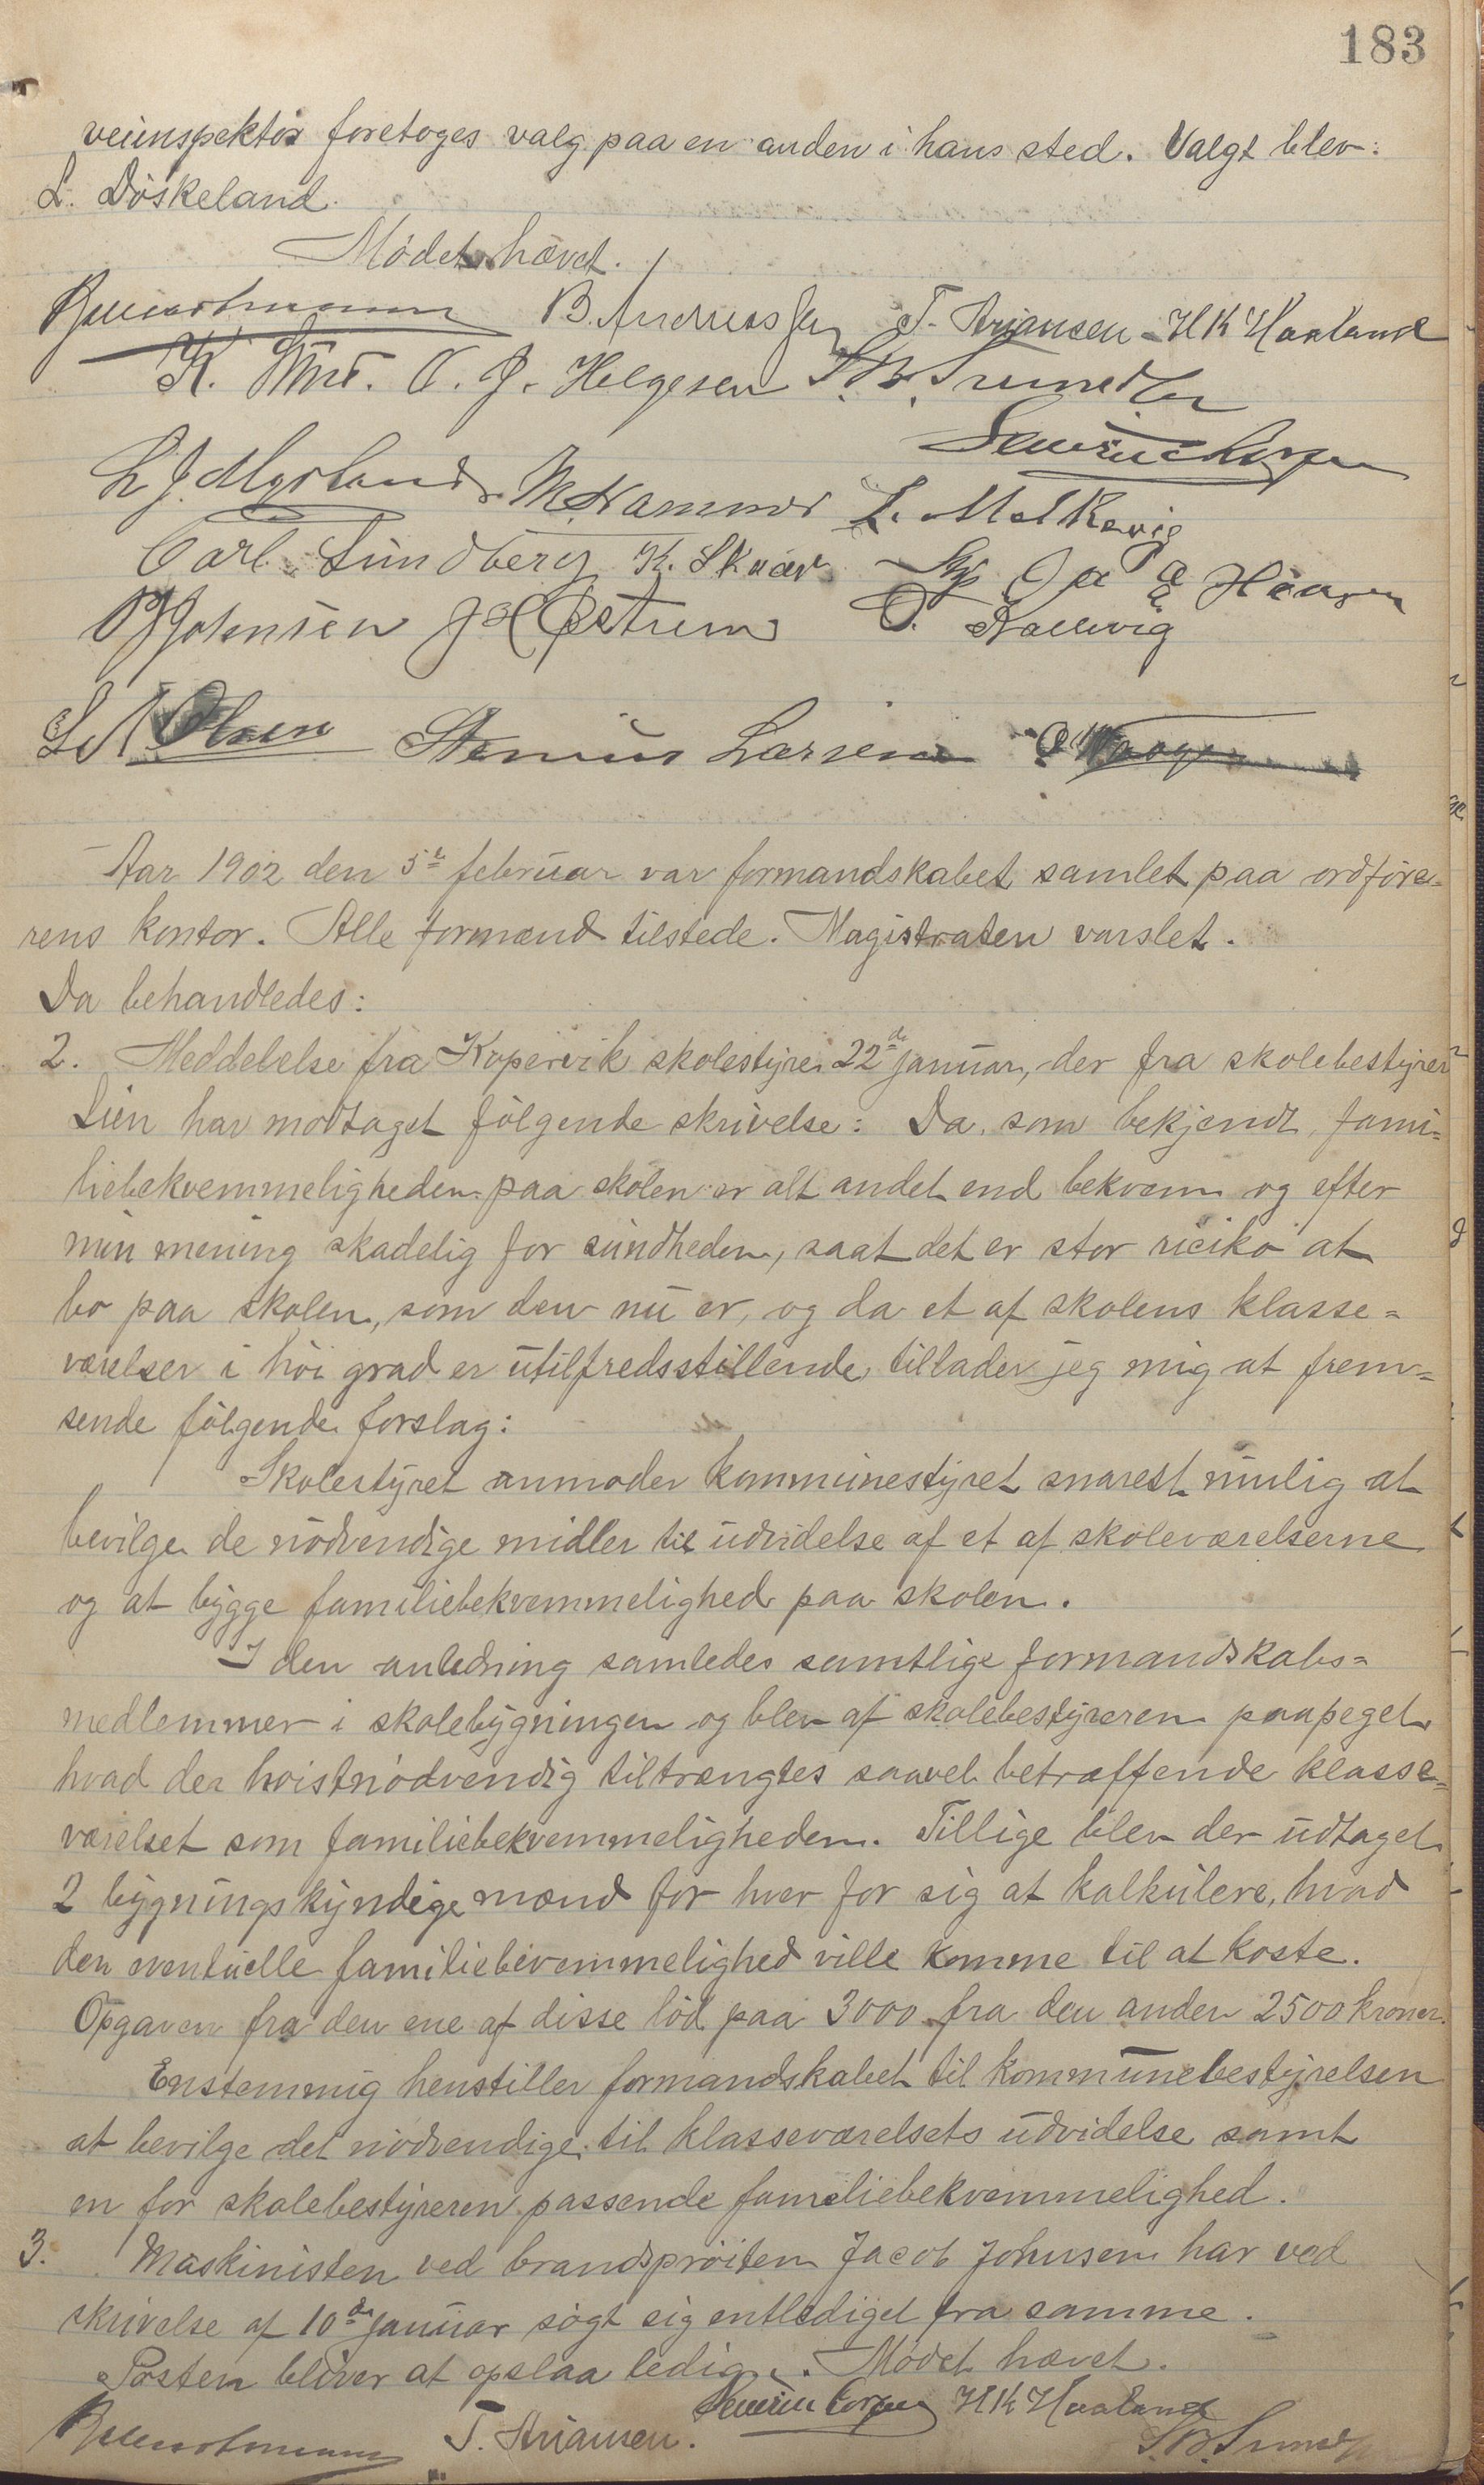 183
veiinspektør foretoges valg paa en anden i hans sted. Valgt blev:
L. Døskeland.
Mødet hævet.
B. Andreassen T. Arjansen H K Haaland
K. O. J. Helgesen S. B.
Severin
L J Myrland M. Hammer L. Melkevig
Carl Sundberg K. Skaar
Johnsen Kallevig
Olsen Stenius Larsen
Aar 1902 den 5te februar var formandskabet samlet paa ordføre-
rens kontor. Alle formænd tilstede. Magistraten varslet.
Da behandledes:
2. Meddelelse fra Kopervik skolestyre 22de januar, der fra skolebestyrer
Lien har modtaget følgende skrivelse: Da, som bekjendt, fami-
liebekvemmeligheden paa skolen er alt andet end bekvem og efter
min mening skadelig for sundheden, saat det er stor risiko at
bo paa skolen, som den nu er, og da et af skolens klasse-
værelser i høi grad er utilfredsstillende, tillader jeg mig at frem-
sende følgende forslag:
Skolestyret anmoder kommunestyret snarest mulig at
bevilge de nødvendige midler til udvidelse af et af skoleværelserne
og at bygge familiebekvemmelighed paa skolen.
I den anledning samledes samtlige formandskabs-
medlemmer i skolebygningen og blev af skolebestyreren paapeget
hvad der høistnødvendig tiltrængtes saavel betræffende klasse-
værelset som familiebekvemmeligheden. Tillige blev der udtaget
2 bygningskyndige mænd for hver for sig at kalkulere, hvad
den eventuelle familiebevemmelighed ville komme til at koste.
Opgaven fra den ene af disse lød paa 3000 fra den anden 2500 kroner.
Enstemmig henstiller formandskabet til kommunebestyrelsen
at bevilge det nødvendige til klasseværelsets udvidelse samt
en for skolebestyreren passende familiebekvemmelighed.
3. Maskinisten ved brandsprøiten Jacob Johnsen har ved
skrivelse af 10de januar søgt sig entlediget fra samme.
Posten bliver at opslaa ledig. Mødet hævet.
Severin H K Haaland
T. Arjansen. S. B.